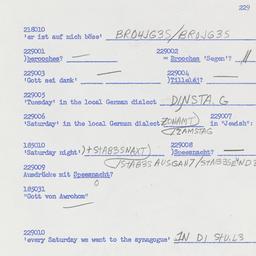 229
218010
'er ist auf mich böse' BROWJG3S/BROJG3S
229001 229002
)berooches? — = Brooches 'Segen'? //
229003 229004
'Gott sei dank' — )Tillekéj? —
229005
'Tuesday' in the local German dialect DINSTA.G
229006 229007
'Saturday' in the local German dialect ZONAMT) in "Jewish":
/ZAMSTAG
185010 229008
'Saturday night')+STAB3SNAXT) )Speesnacht? —
229009 /STAB3S AUSGANJ/STAB3S
Ausdrücke mit Speesnacht?
0
185031
"Gott von Awrohom"
—
229010
'every Saturday we went to the synagogue' IN DI STU.L3